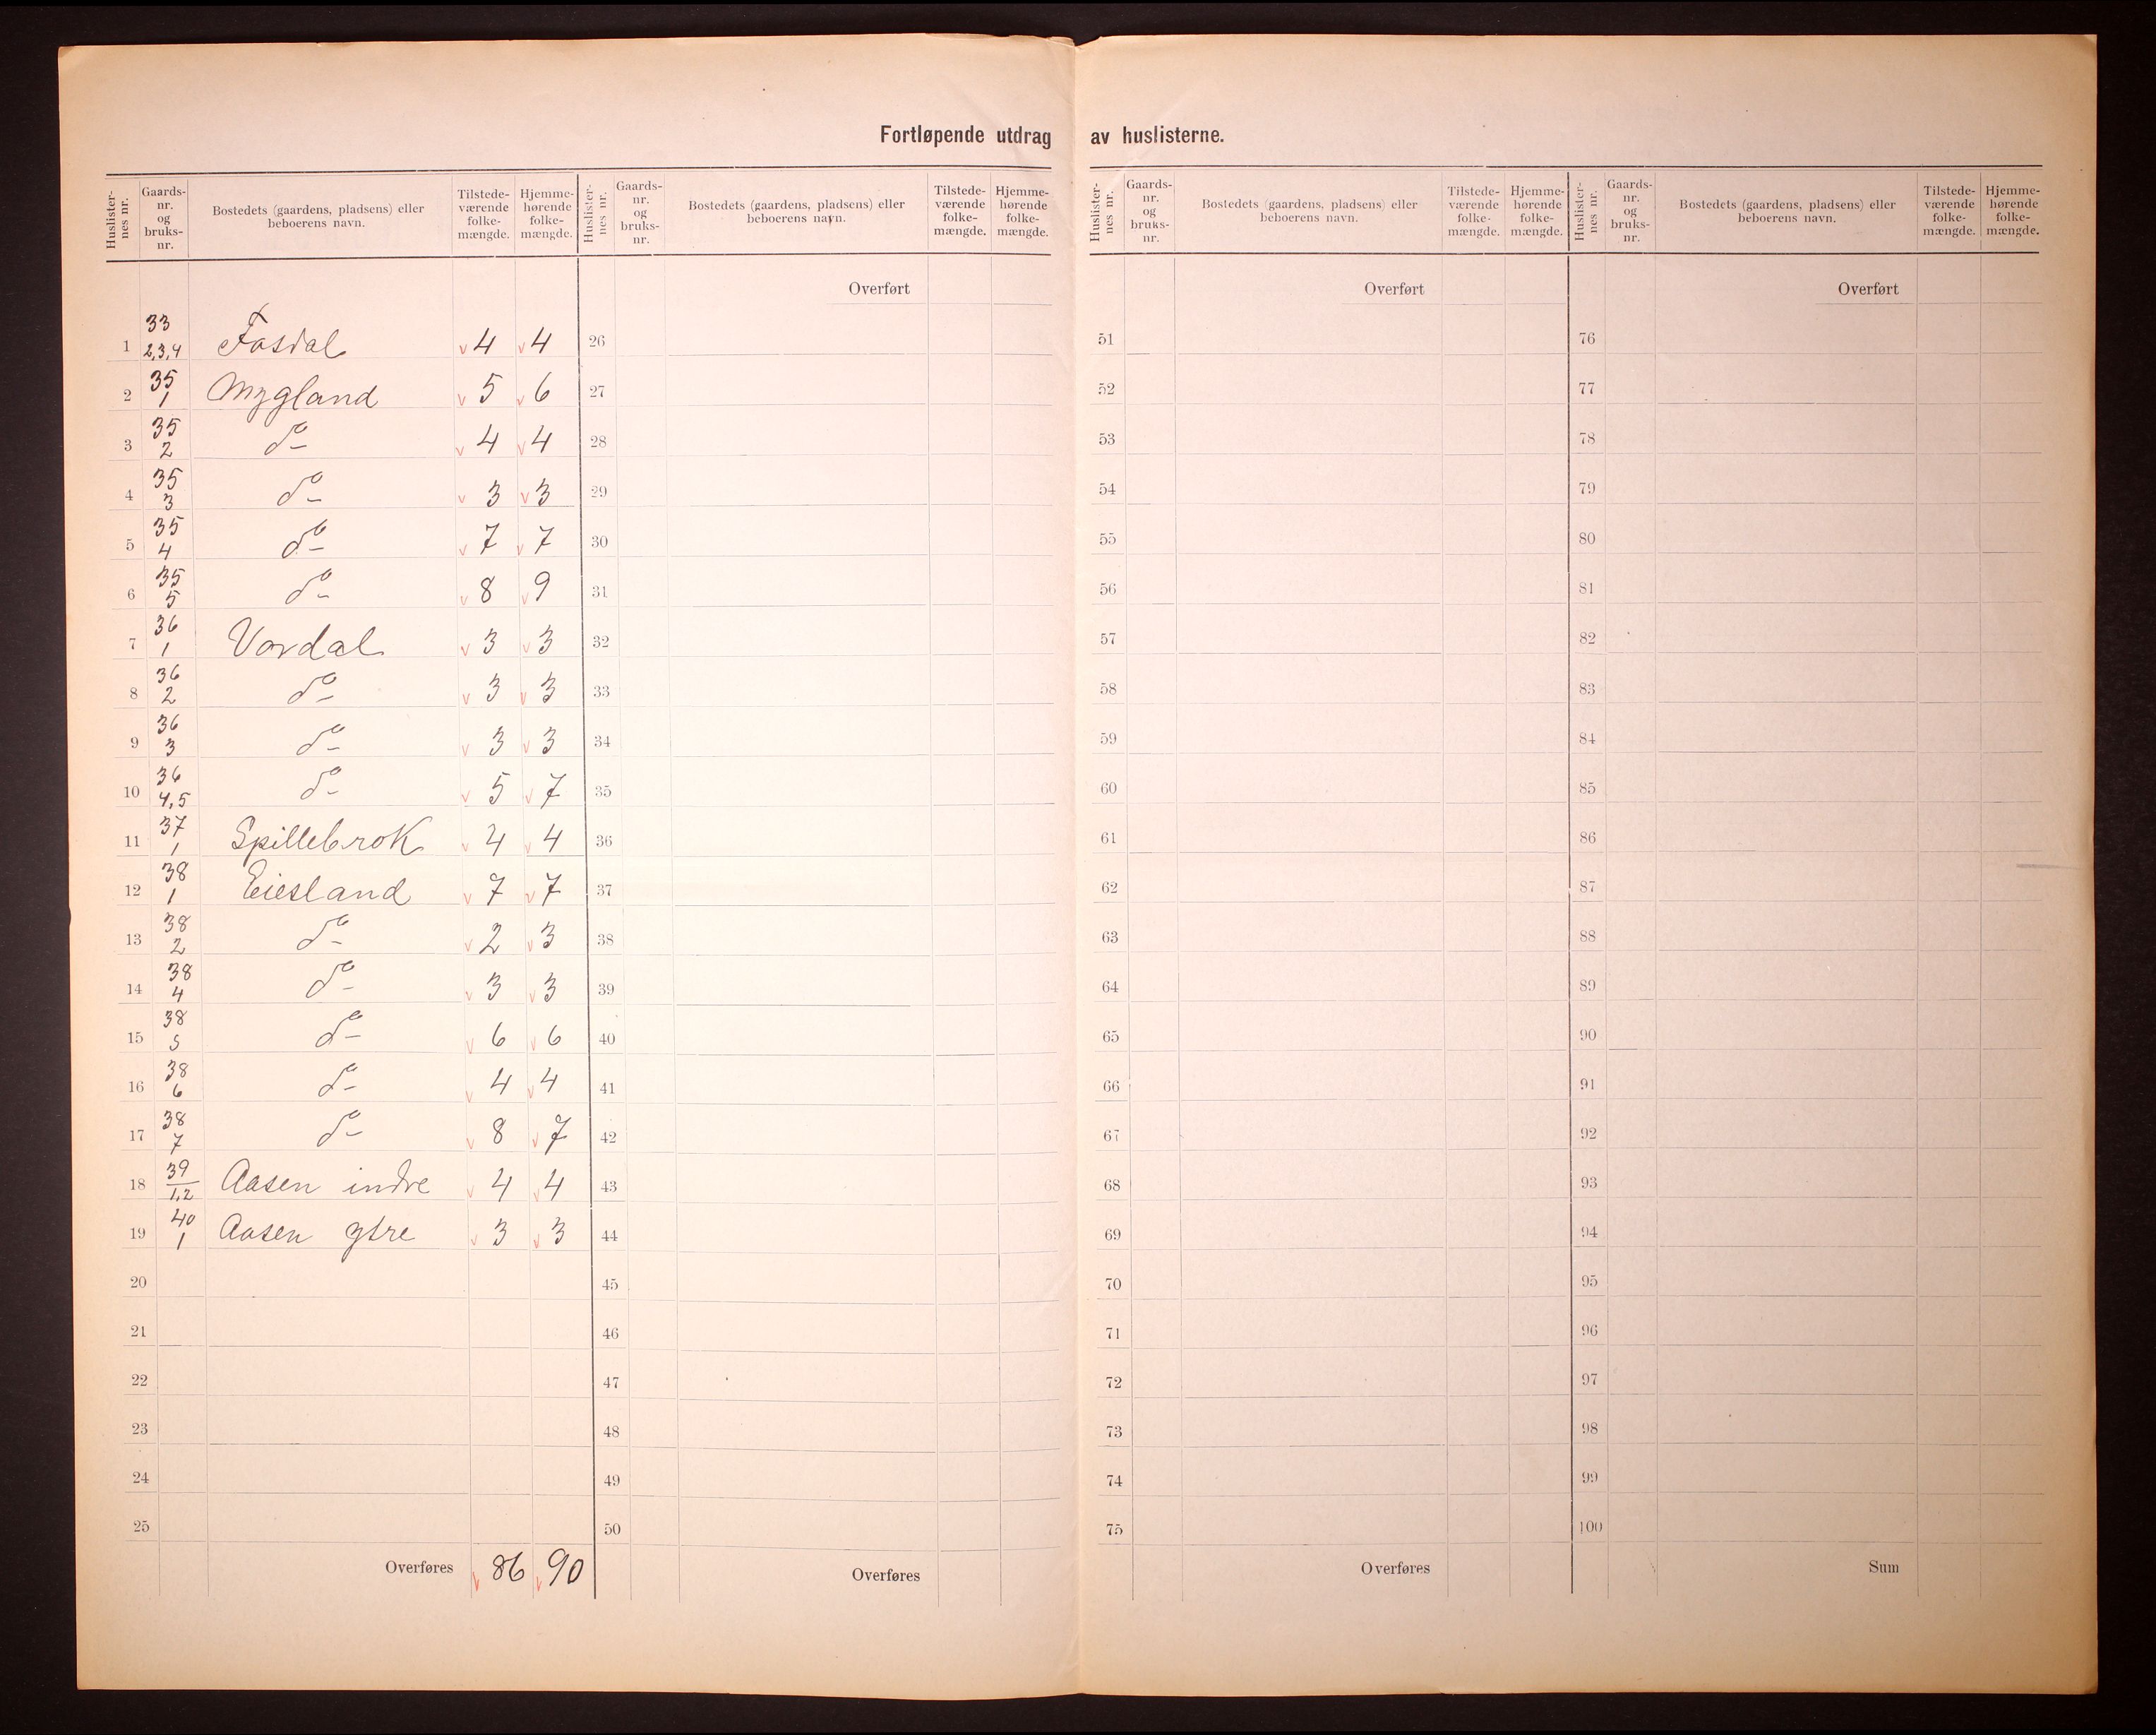 Fortløpende utdrag av huslisterne.
Huslister-nes nr. | Gaards-nr. og bruks-nr. | Bostedets (gaardens, pladsens) eller beboerens navn. | Tilstede-værende folke-mængde. | Hjemme-hørende folke-mængde. | Huslister-nes nr. | Gaards-nr. og bruks-nr. | Bostedets (gaardens, pladsens) eller beboerens navn. | Tilstede-værende folke-mængde. | Hjemme-hørende folke-mængde. | Huslister-nes nr. | Gaards-nr. og bruks-nr. | Bostedets (gaardens, pladsens) eller beboerens navn. | Tilstede-værende folke-mængde. | Hjemme-hørende folke-mængde. | Huslister-nes nr. | Gaards-nr. og bruks-nr. | Bostedets (gaardens, pladsens) eller beboerens navn. | Tilstede-værende folke-mængde. | Hjemme-hørende folke-mængde.
Overført Overført Overført
1 33 2,3,4 Fosdal v 4 v 4 26 51 76
2 35 1 Mygland v 5 v 6 27 52 77
3 35 2 do v 4 v 4 28 53 78
4 35 3 do v 3 v 3 29 54 79
5 35 4 do v 7 v 7 30 55 80
6 35 5 do v 8 v 9 31 56 81
7 36 1 Vordal v 3 v 3 32 57 82
8 36 2 do v 3 v 3 33 58 83
9 36 3 do v 3 v 3 34 59 84
10 36 4,5 do v 5 v 7 35 60 85
11 37 1 Spillebrok v 4 v 4 36 61 86
12 38 1 Eiesland v 7 v 7 37 62 87
13 38 2 do v 2 v 3 38 63 88
14 38 4 do v 3 v 3 39 64 89
15 38 5 do v 6 v 6 40 65 90
16 38 6 do v 4 v 4 41 66 91
17 38 7 do v 8 v 7 42 67 92
18 39 1,2 Aasen indre v 4 v 4 43 68 93
19 40 1 Aasen ytre v 3 v 3 44 69 94
20 45 70 95
21 46 71 96
22 47 72 97
23 48 73 98
24 49 74 99
25 50 75 100
Overføres v 86 v 90 Overføres Overføres Sum